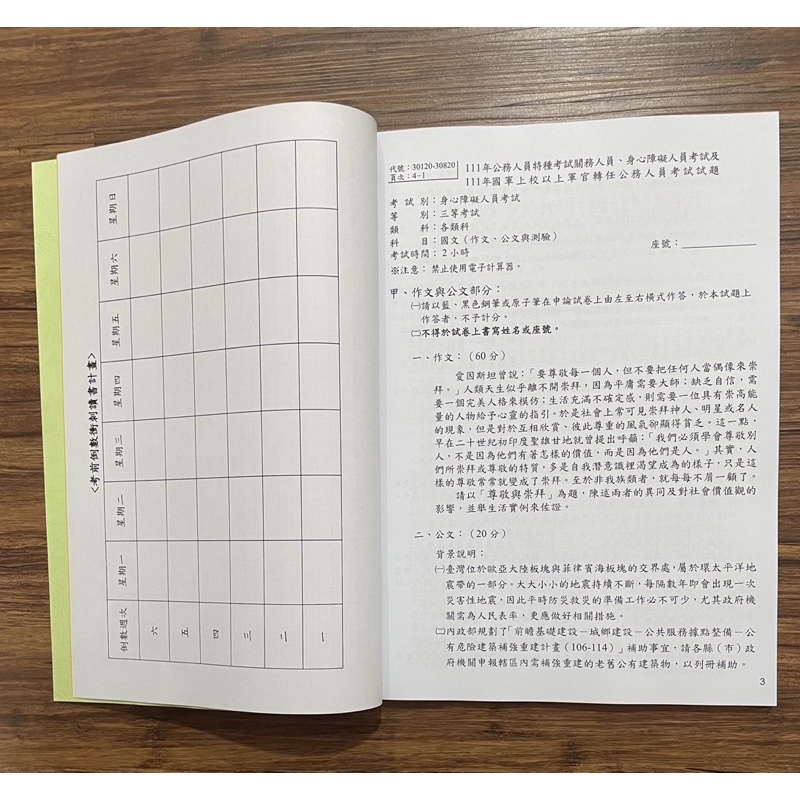 <考前倒數衝刺讀書計畫>
倒數週次 星期一 星期二 星期三 星期四 星期五 星期六 星期日
六
五
四
三
二
一
代號：30120-30820
頁次：4-1
111年公務人員特種考試關務人員、身心障礙人員考試及
111年國軍上校以上軍官轉任公務人員考試試題
考試別：身心障礙人員考試
等別：三等考試
類科：各類科
科目：國文（作文、公文與測驗）
考試時間：2小時
座號：
※注意：禁止使用電子計算器。
甲、作文與公文部分：
㈠請以藍、黑色鋼筆或原子筆在申論試卷上由左至右橫式作答，於本試題上
作答者，不予計分。
㈡不得於試卷上書寫姓名或座號。
一、作文：（60分）
愛因斯坦曾說：「要尊敬每一個人，但不要把任何人當偶像來崇
拜。」人類天生似乎離不開崇拜，因為平庸需要大師；缺乏自信，需
要一個完美人格來模仿；生活充滿不確定感，則需要一位具有崇高能
量的人物給予心靈的指引。於是社會上常可見崇拜神人、明星或名人
的現象，但是對於互相欣賞、彼此尊重的風氣卻顯得貧乏。這一點，
早在二十世紀初印度聖雄甘地就曾提出呼籲：「我們必須學會尊敬別
人，不是因為他們有著怎樣的價值，而是因為他們是人。」其實，人
們所崇拜或尊敬的特質，多是自我潛意識裡渴望成為的樣子，只是這
樣的尊敬常常就變成了崇拜。至於非我族類者，就每每不屑一顧了。
請以「尊敬與崇拜」為題，陳述兩者的異同及對社會價值觀的
影響，並舉生活實例來佐證。
二、公文：（20分）
背景說明：
㈠臺灣位於歐亞大陸板塊與菲律賓海板塊的交界處，屬於環太平洋地
震帶的一部分。大大小小的地震持續不斷，每隔數年即會出現一次
災害性地震，因此平時防災救災的準備工作必不可少，尤其政府機
關需為人民表率，更應做好相關措施。
㈡內政部規劃了「前瞻基礎建設－城鄉建設－公共服務據點整備－公
有危險建築補強重建計畫（106-114）」補助事宜，請各縣（市）政
府機關申報轄區內需補強重建的老舊公有建築物，以列冊補助。
3